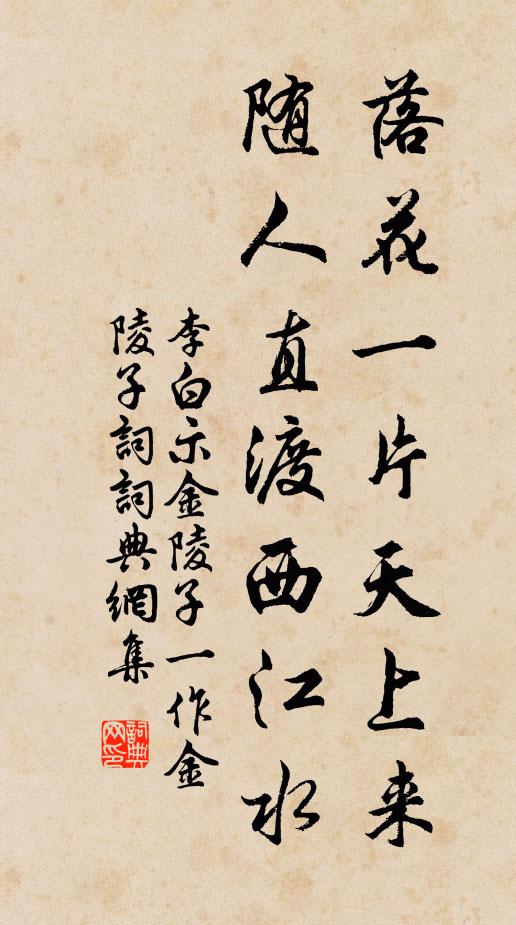 落花一片天上来
随人直渡西江水
李白示金陵子一作金
陵子詞詞典網集
詞典
网印